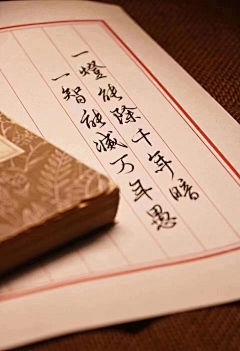 一燈能除千年暗
一智能滅万年愚